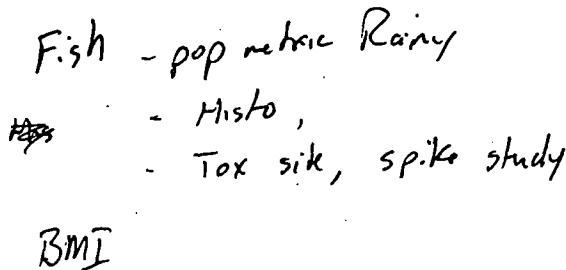 Fish - pop metric Rainy
- Histo,
- Tox site, spike study
BMI